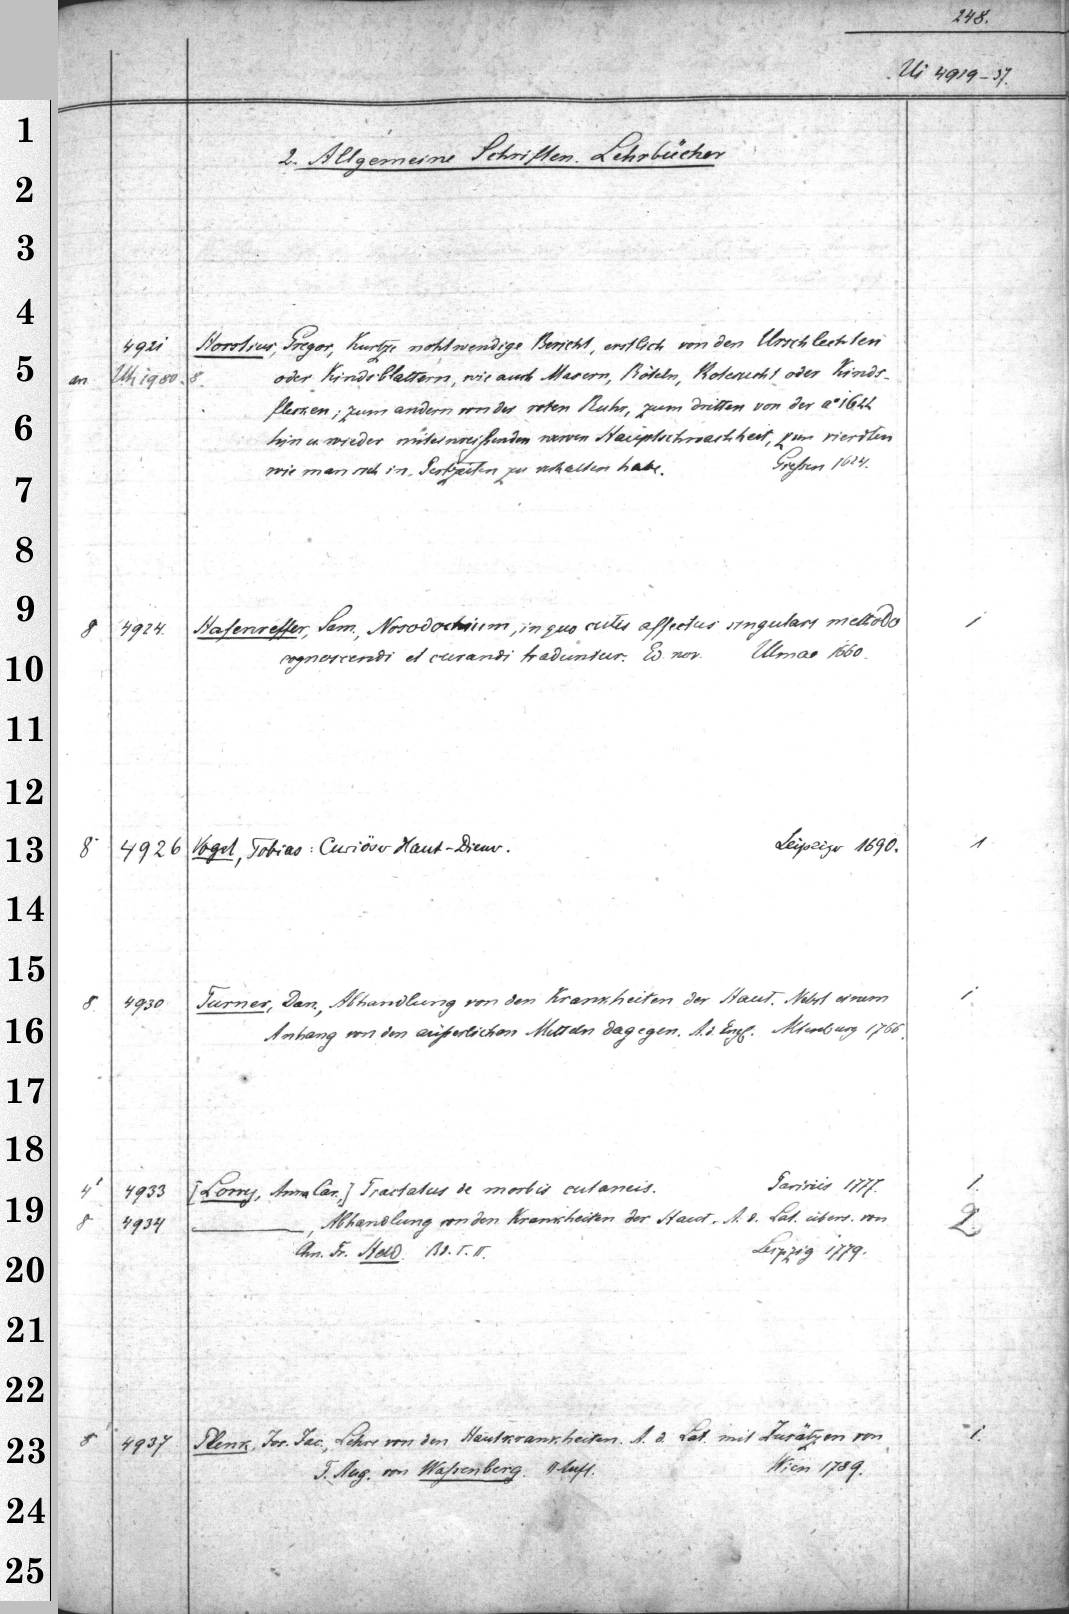 248.
Ui 4919-37.
1
2. Allgemeine Schriften. Lehrbücher
2
3
4
4921 Horstius, Gregor, Kurtze nohtwendige Bericht, erstlich von den Urschlechten
5
an Uh 1980. 8. oder Kindsblattern, wie auch Masern, Röteln, Rotesucht oder Kinds-
flecken; zum andern von der roten Ruhr, zum dritten von der a° 1622
6
hin u. wieder newen Hauptschwachheit, zum vierdten
wie man sich in Pestzeiten zu verhalten habe. Giessen 1624.
7
8
9
8 4924. Hafenreffer, Sam., Nosodochium, in quo cutis affectus singulari methodo 1
10
cognoscendi et curandi traduntur. Ed. nov. Ulmae 1660.
11
12
13
8° 4926 Vogel, Tobias: Curiöser Haut-Diener. Leipzig 1690. 1
14
15
8 4930 Turner, Dan., Abhandlung von den Krankheiten der Haut. Nebst einem 1
16
Anhang von den äußerlichen Mitteln dagegen. A. d. Engl. Altenburg 1766.
17
18
4' 4933 [Lorry, Anna Car.] Tractatus de morbis cutaneis. Parisiis 1777. 1.
19
8 4934 ———, Abhandlung von den Krankheiten der Haut. A. d. Lat. übers. von 2.
Chn. Fr. Held. Bd. I. II. Leipzig 1779.
20
21
22
8' 4937 Plenk, Jos. Jac., Lehre von den Hautkrankheiten. A. d. Lat. mit Zusätzen von 1.
23
F. Aug. von Wasserberg. II Aufl. Wien 1789.
24
25